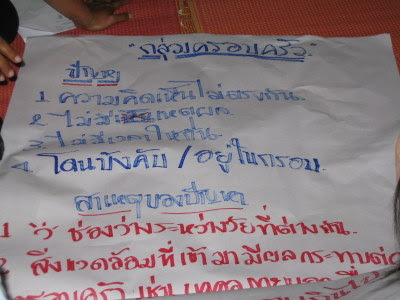 "กลุ่มครอบครัว"
ปัญหา
1 ความคิดเห็นไม่ตรงกัน
2 ไม่มีเหตุผล
3 ไม่มีเวลาให้กัน
4. โดนบังคับ / อยู่ในกรอบ
สาเหตุของปัญหา
1 ช่องว่างระหว่างวัยที่ต่างกัน
2 สิ่งแวดล้อมที่เข้ามามีผลกระทบต่อ
ครอบครัว เช่น